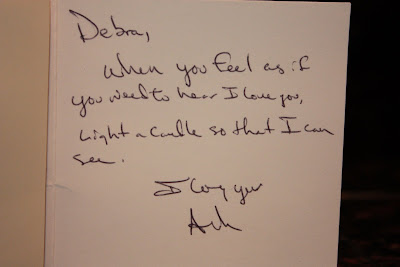 Debra,
When you feel as if
you need to hear I love you,
Light a candle so that I can
see.
I love you